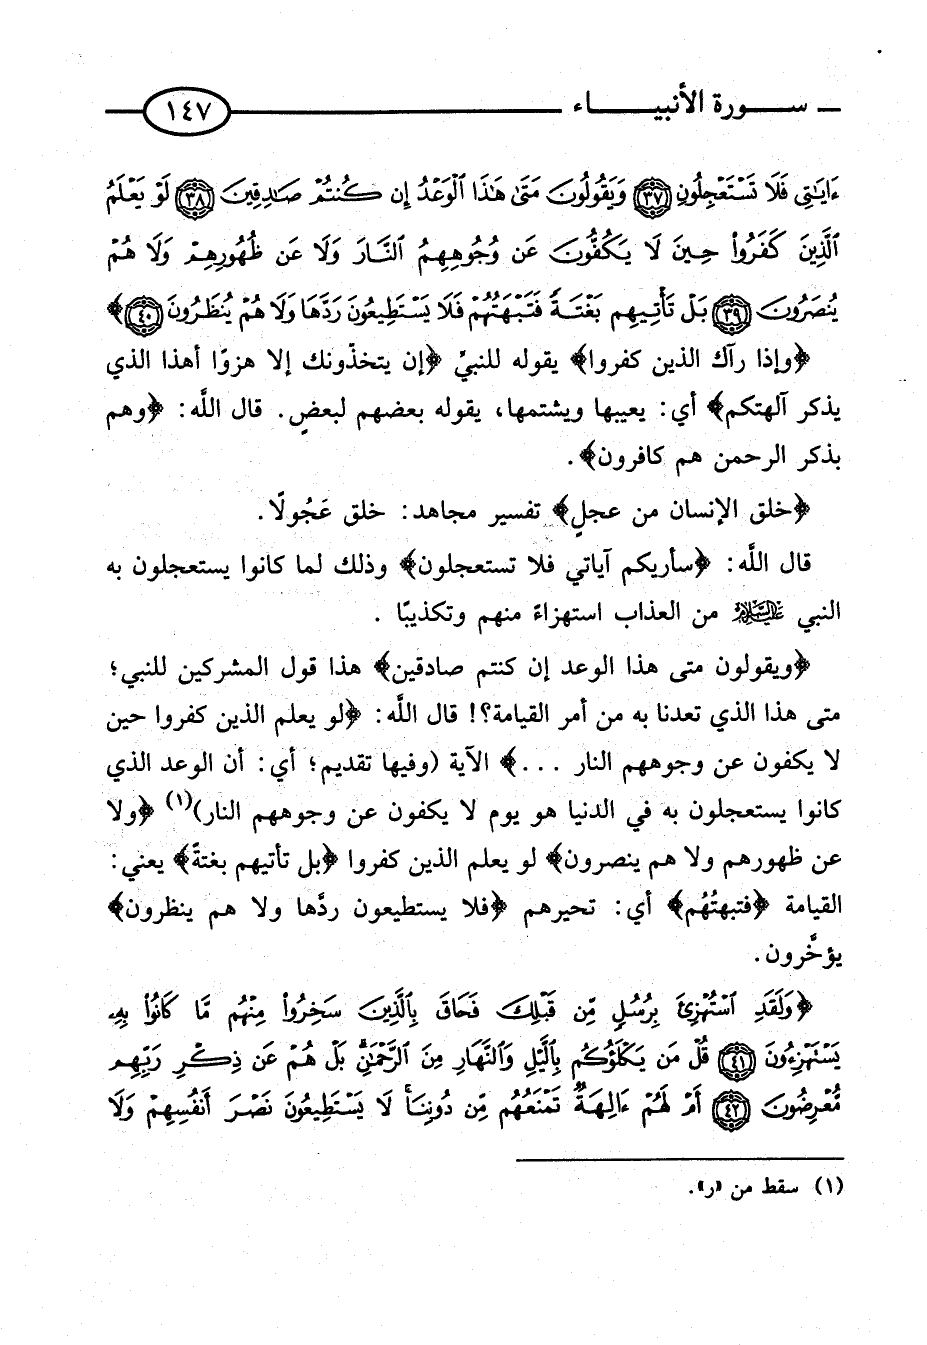 سورة الأنبياء ١٤٧
ءَايَـٰتِى فَلَا تَسْتَعْجِلُونِ ﴿٣٧﴾ وَيَقُولُونَ مَتَىٰ هَـٰذَا ٱلْوَعْدُ إِن كُنتُمْ صَـٰدِقِينَ ﴿٣٨﴾ لَوْ يَعْلَمُ
ٱلَّذِينَ كَفَرُوا۟ حِينَ لَا يَكُفُّونَ عَن وُجُوهِهِمُ ٱلنَّارَ وَلَا عَن ظُهُورِهِمْ وَلَا هُمْ
يُنصَرُونَ ﴿٣٩﴾ بَلْ تَأْتِيهِم بَغْتَةً فَتَبْهَتُهُمْ فَلَا يَسْتَطِيعُونَ رَدَّهَا وَلَا هُمْ يُنظَرُونَ ﴿٤٠﴾﴾
﴿وإذا رآك الذين كفروا﴾ يقوله للنبيِّ ﴿إن يتخذونك إلا هزوًا أهذا الذي
يذكر آلهتكم﴾ أي: يعيبها ويشتمها، يقوله بعضهم لبعضٍ. قال اللَّه: ﴿وهم
بذكر الرحمن هم كافرون﴾.
﴿خلق الإنسان من عجلٍ﴾ تفسير مجاهد: خلق عَجُولًا.
قال اللَّه: ﴿سأريكم آياتي فلا تستعجلون﴾ وذلك لما كانوا يستعجلون به
النبي عليه السلام من العذاب استهزاءً منهم وتكذيبًا .
﴿ويقولون متى هذا الوعد إن كنتم صادقين﴾ هذا قول المشركين للنبي؛
متى هذا الذي تعدنا به من أمر القيامة؟! قال اللَّه: ﴿لو يعلم الذين كفروا حين
لا يكفون عن وجوههم النار ...﴾ الآية (وفيها تقديم؛ أي: أن الوعد الذي
كانوا يستعجلون به في الدنيا هو يوم لا يكفون عن وجوههم النار)(١) ﴿ولا
عن ظهورهم ولا هم ينصرون﴾ لو يعلم الذين كفروا ﴿بل تأتيهم بغتةً﴾ يعني:
القيامة ﴿فتبهتُهُم﴾ أي: تحيرهم ﴿فلا يستطيعون ردَّها ولا هم ينظرون﴾
يؤخَّرون.
﴿وَلَقَدِ ٱسْتُهْزِئَ بِرُسُلٍ مِّن قَبْلِكَ فَحَاقَ بِٱلَّذِينَ سَخِرُوا۟ مِنْهُم مَّا كَانُوا۟ بِهِۦ
يَسْتَهْزِءُونَ ﴿٤١﴾ قُلْ مَن يَكْلَؤُكُم بِٱلَّيْلِ وَٱلنَّهَارِ مِنَ ٱلرَّحْمَـٰنِ ۗ بَلْ هُمْ عَن ذِكْرِ رَبِّهِم
مُّعْرِضُونَ ﴿٤٢﴾ أَمْ لَهُمْ ءَالِهَةٌ تَمْنَعُهُم مِّن دُونِنَا ۚ لَا يَسْتَطِيعُونَ نَصْرَ أَنفُسِهِمْ وَلَا
(١) سقط من «ر».